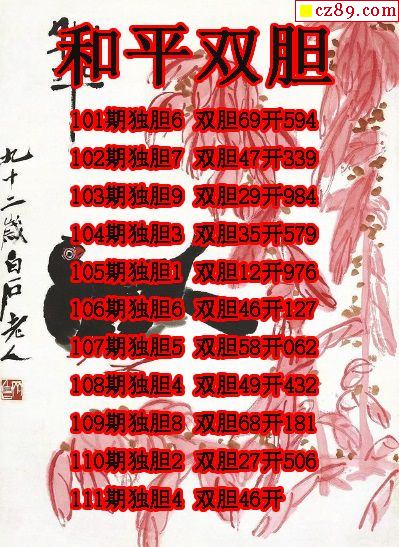 cz89.com
和平双胆
101期独胆6 双胆69开594
102期独胆7 双胆47开339
103期独胆9 双胆29开984
104期独胆3 双胆35开579
105期独胆1 双胆12开976
106期独胆6 双胆46开127
107期独胆5 双胆58开062
108期独胆4 双胆49开432
109期独胆8 双胆68开181
110期独胆2 双胆27开506
111期独胆4 双胆46开
九十二歲白石老人